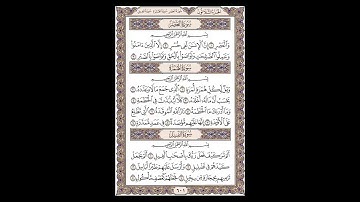 سُورَةُ الْعَصْرِ
بِسْمِ اللَّهِ الرَّحْمَٰنِ الرَّحِيمِ
وَالْعَصْرِ ١ إِنَّ الْإِنسَانَ لَفِي خُسْرٍ ٢ إِلَّا الَّذِينَ آمَنُوا
وَعَمِلُوا الصَّالِحَاتِ وَتَوَاصَوْا بِالْحَقِّ وَتَوَاصَوْا بِالصَّبْرِ ٣
سُورَةُ الْهُمَزَةِ
بِسْمِ اللَّهِ الرَّحْمَٰنِ الرَّحِيمِ
وَيْلٌ لِّكُلِّ هُمَزَةٍ لُّمَزَةٍ ١ الَّذِي جَمَعَ مَالًا وَعَدَّدَهُ ٢
يَحْسَبُ أَنَّ مَالَهُ أَخْلَدَهُ ٣ كَلَّا لَيُنبَذَنَّ فِي الْحُطَمَةِ ٤
وَمَا أَدْرَاكَ مَا الْحُطَمَةُ ٥ نَارُ اللَّهِ الْمُوقَدَةُ ٦ الَّتِي تَطَّلِعُ
عَلَى الْأَفْئِدَةِ ٧ إِنَّهَا عَلَيْهِم مُّؤْصَدَةٌ ٨ فِي عَمَدٍ مُّمَدَّدَةٍ ٩
سُورَةُ الْفِيلِ
بِسْمِ اللَّهِ الرَّحْمَٰنِ الرَّحِيمِ
أَلَمْ تَرَ كَيْفَ فَعَلَ رَبُّكَ بِأَصْحَابِ الْفِيلِ ١ أَلَمْ يَجْعَلْ
كَيْدَهُمْ فِي تَضْلِيلٍ ٢ وَأَرْسَلَ عَلَيْهِمْ طَيْرًا أَبَابِيلَ ٣
تَرْمِيهِم بِحِجَارَةٍ مِّن سِجِّيلٍ ٤ فَجَعَلَهُمْ كَعَصْفٍ مَّأْكُولٍ ٥
٦٠١